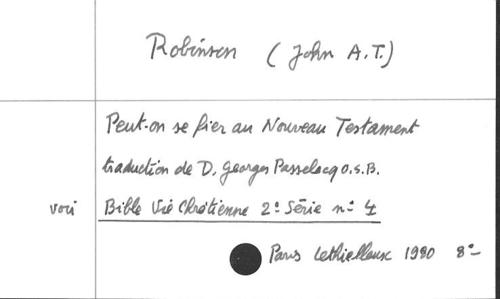 Robinson (John A.T.)
Peut-on se fier au Nouveau Testament
traduction de D. Georges Passelecq O.S.B.
voir Bible Vie Chrétienne 2e Série n° 4
Paris Lethielleux 1980 8°-